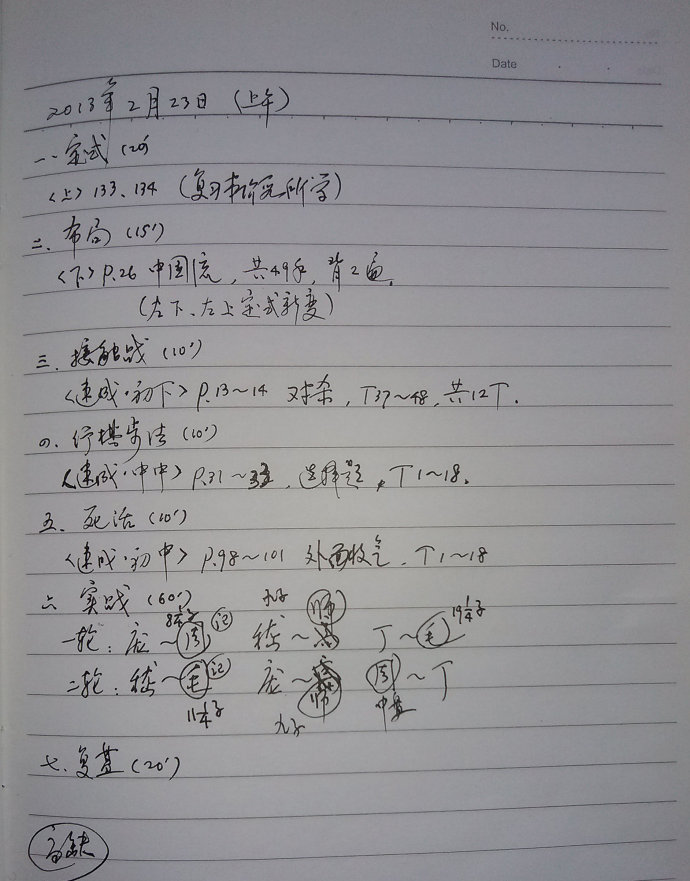 No.
Date
2013年2月23日 (上午)
一、定式 (20')
<上> 133、134 (复习本阶完所学)
二、布局 (15')
<下> P.26 中国流, 共49手, 背2遍.
(左下、左上定式新变)
三、接触战 (10')
<速成·初下> P.13~14 对杀, T37~48, 共12T.
四、行棋步法 (10')
<速成·中中> P.31~ 选择题, T1~18.
五、死活 (10')
<速成·初中> P.98~101 外面收气. T1~18
六 实战 (60')
九子 师 19 1/4子
一轮: 庞~周 记 嵇~ 丁~毛
二轮: 嵇~毛 记 庞~师 周~丁
11 1/4子 九子 中盘
七、复盘 (20')
高缺